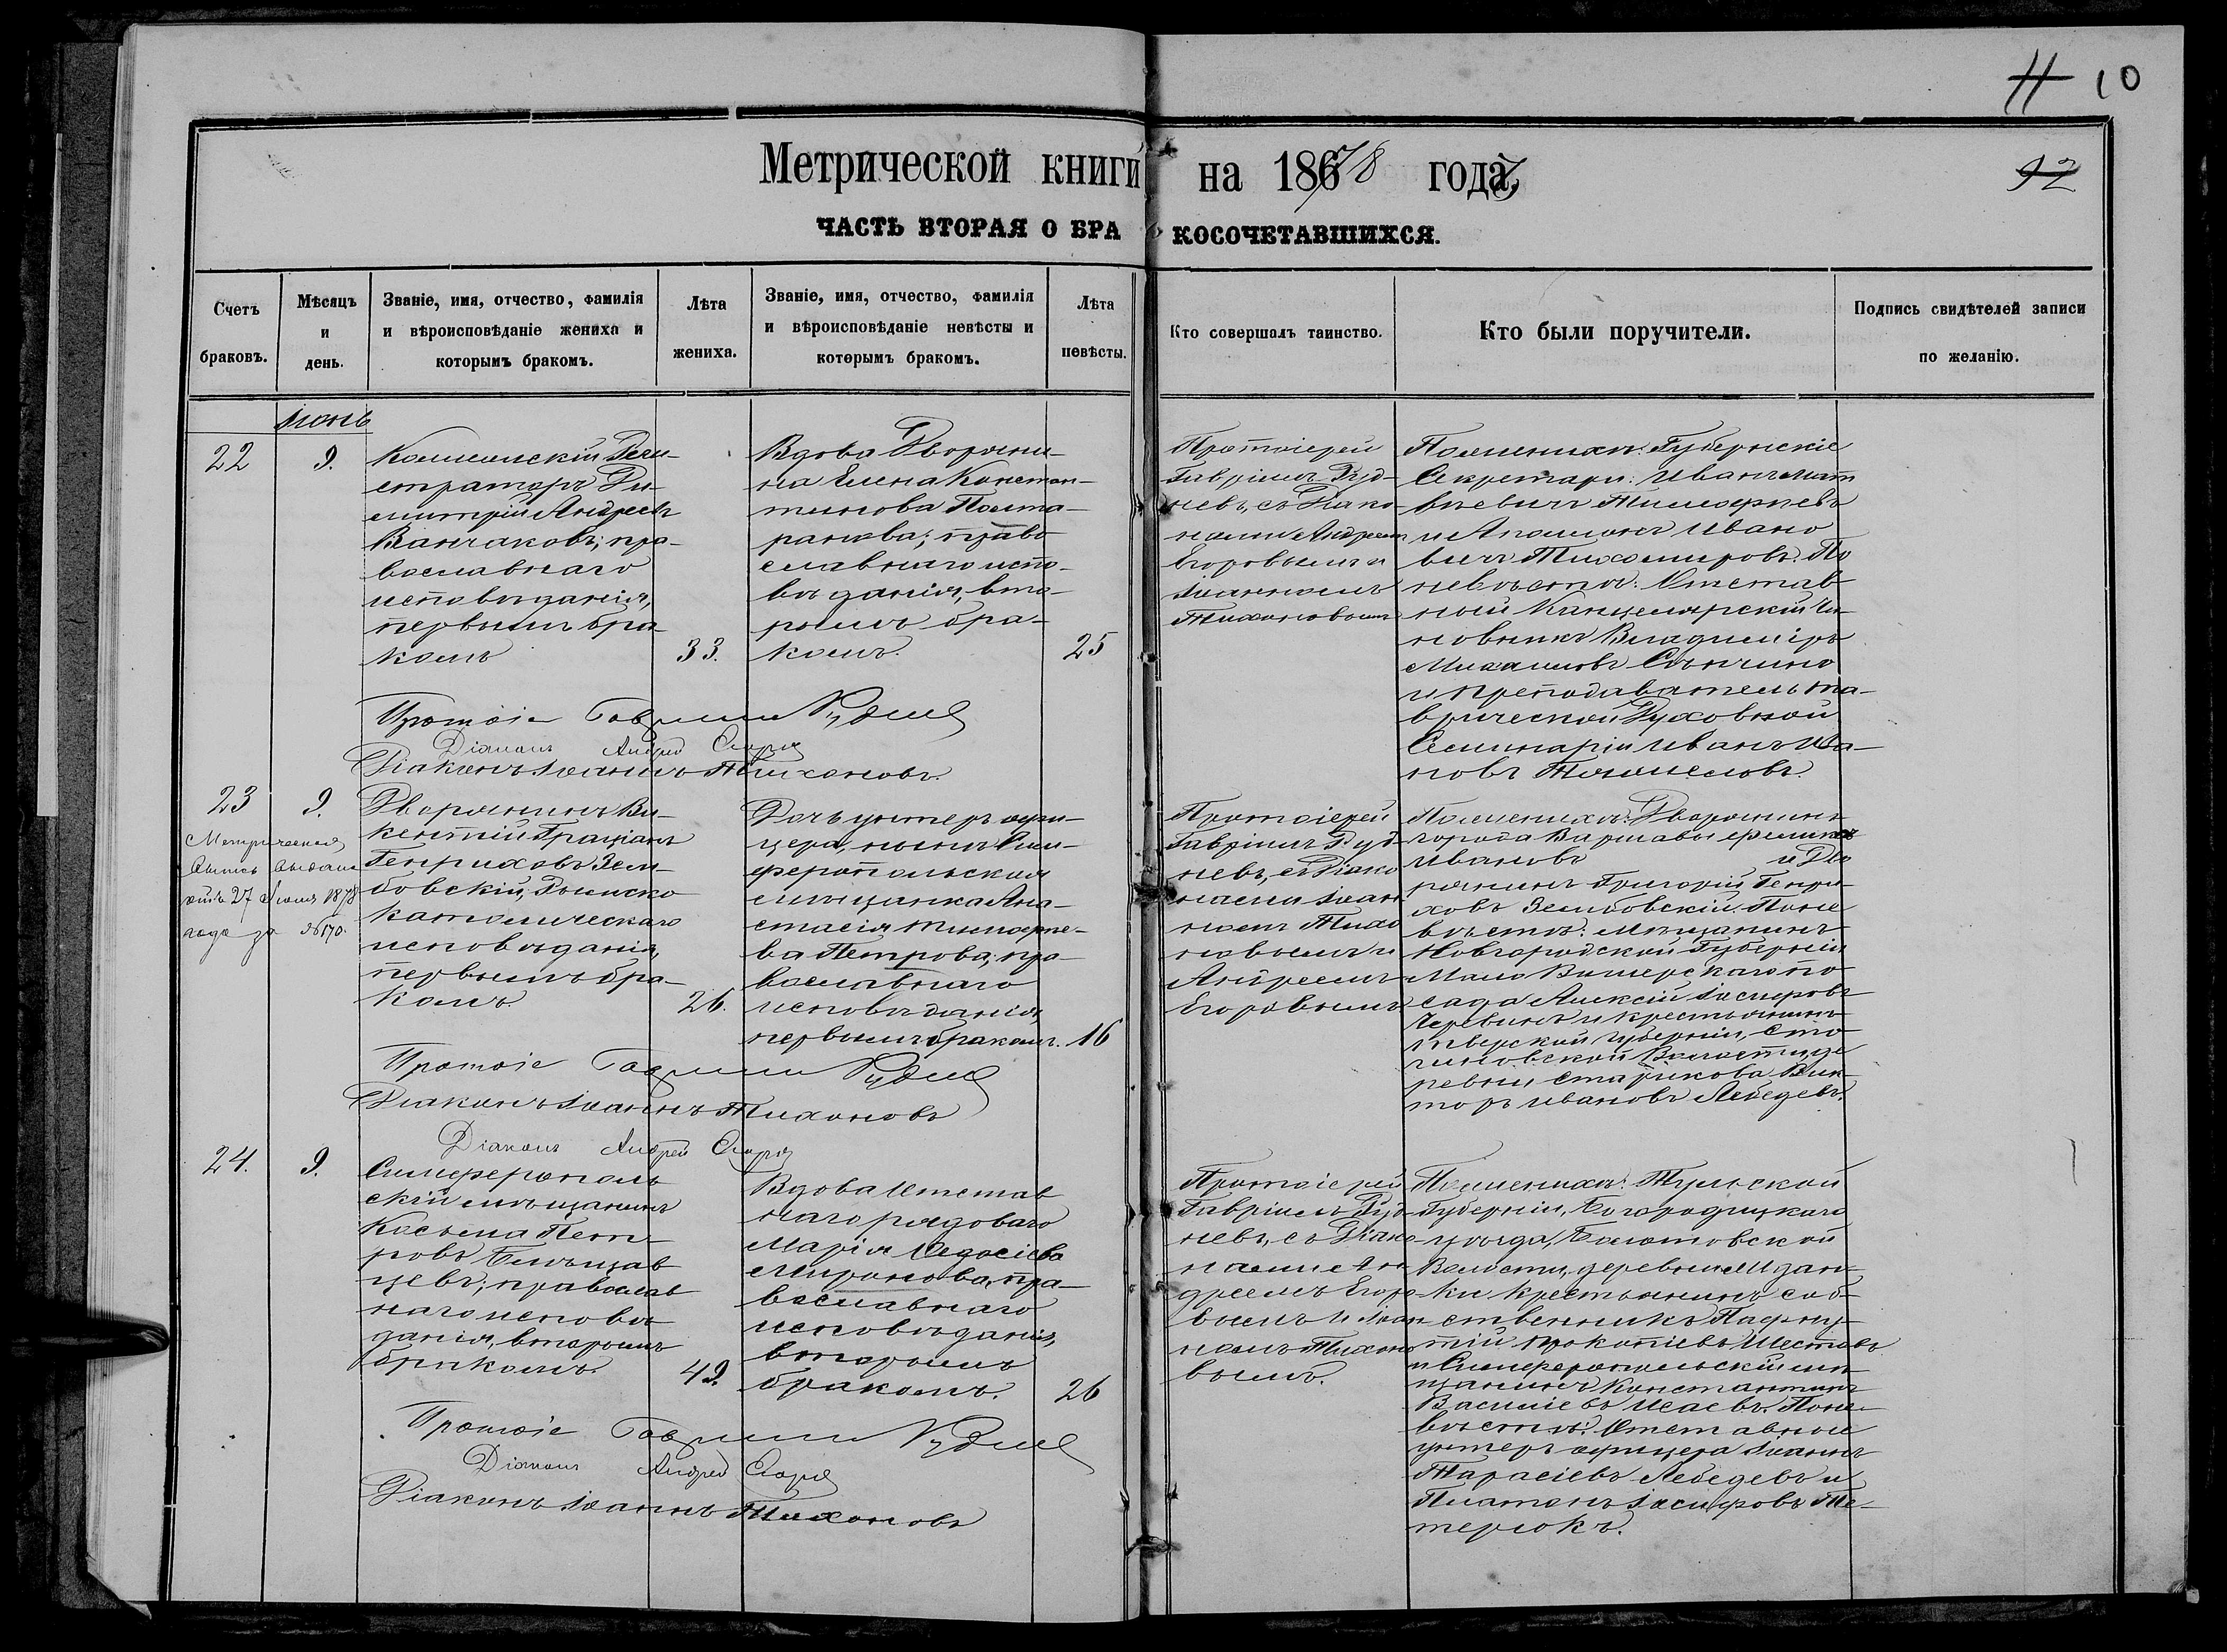 10
Метрической книги на 1878 года,
92
ЧАСТЬ ВТОРАЯ О БРАКОСОЧЕТАВШИХСЯ.
Счетъ браковъ.
Мѣсяцъ и день.
Званіе, имя, отчество, фамилія
и вѣроисповѣданіе жениха и
которымъ бракомъ.
Лѣта
жениха.
Званіе, имя, отчество, фамилія
и вѣроисповѣданіе невѣсты и
которымъ бракомъ.
Лѣта
невѣсты.
Кто совершалъ таинство.
Кто были поручители.
Подпись свидѣтелей записи
по желанію.
22
9.
Реги-
страторъ Ди-
митрій Андреевъ
Ванчаковъ; пра-
вославнаго
исповѣданія,
первымъ бра-
комъ
33.
Вдова Дворяни-
на Елена Констан-
тинова Полта-
ранова; право
славнаго испо-
вѣданія, вто-
рымъ бра-
комъ.
25
Протоіерей
Гавріилъ Руд-
невъ, съ Діако
нами Андреем
Егоровымъ и
Іоанномъ
Тихоновымъ
По женихѣ: Губернскіе
Секретари: Иванъ Мат
вѣевичъ Тимофѣевъ
и Аполлонъ Ивано
вичъ Тихомировъ. По
невѣстѣ: Отстав
ной Канцелярскій Чи-
новникъ Владиміръ
Михаиловъ
и Преподаватель Та-
врической Духовной
Семинаріи Иванъ Ива-
новъ
Протоіе Гавріилъ Руднев
Діаконъ Андрей Егоров
Діаконъ Іоаннъ Тихоновъ.
23
9.
Метрическая
Выпись выдана
27 Іюня 1878
года за №170.
Дворянинъ Ви-
кентій Граціанъ
Генриховъ Зем-
бовскій, Римско
Католическаго
исповѣданія,
первымъ бра-
комъ.
26.
Дочь унтеръ офи-
цера, нынѣ Сим-
феропольская
мѣщанка Ана-
стасія Тимофѣе-
ва Петрова; пра-
вославнаго
исповѣданія,
первымъ бракомъ.
16
Протоіерей
Гавріилъ Руд-
невъ, съ Діако
нами Іоан
номъ Тихо
новымъ и
Андреемъ
Егоровымъ
По женихѣ: Дворянинъ
города Варшавы Феликсъ
Ивановъ и Дво
рянинъ Григорій Генри-
ховъ Зембовскій. По не
вѣстѣ: Мѣщанинъ
Новгородской Губерніи
Мало Вишерскаго по-
сада Алексій Іосифовъ
и крестьянинъ
Тверской Губерніи,
Волости, де
ревни Вик-
торъ Ивановъ Лебедевъ.
Протоіе Гавріилъ Руднев
Діаконъ Іоаннъ Тихоновъ
Діаконъ Андрей Егоров
24.
9.
Симферополь
скій мѣщанинъ
Косьма Пет-
ровъ
православ
наго исповѣ
данія, вторымъ
бракомъ.
49.
Вдова Отстав
наго рядоваго
Марія Ѳедосіева
Миронова, пра-
вославнаго
исповѣданія,
вторымъ
бракомъ.
26
Протоіерей
Гавріилъ Руд-
невъ, съ Діако-
нами Ан-
дреемъ Егоро-
вымъ и Іоан
номъ Тихоно
вымъ.
По женихѣ: Тульской
Губерніи, Богородицкаго
уѣзда,
Волости, деревни
крестьянинъ соб-
ственникъ Пафну-
тій Прокопіевъ Шестовъ
и Симферопольскій мѣ
щанинъ Константинъ
Василіевъ Исаевъ. По не-
вѣстѣ: Отставные
унтеръ офицера Іоаннъ
Тарасіевъ Лебедевъ и
Платонъ Іосифовъ Те-
терюкъ.
Протоіе Гавріилъ Руднев
Діаконъ Андрей Егоров
Діаконъ Іоаннъ Тихоновъ